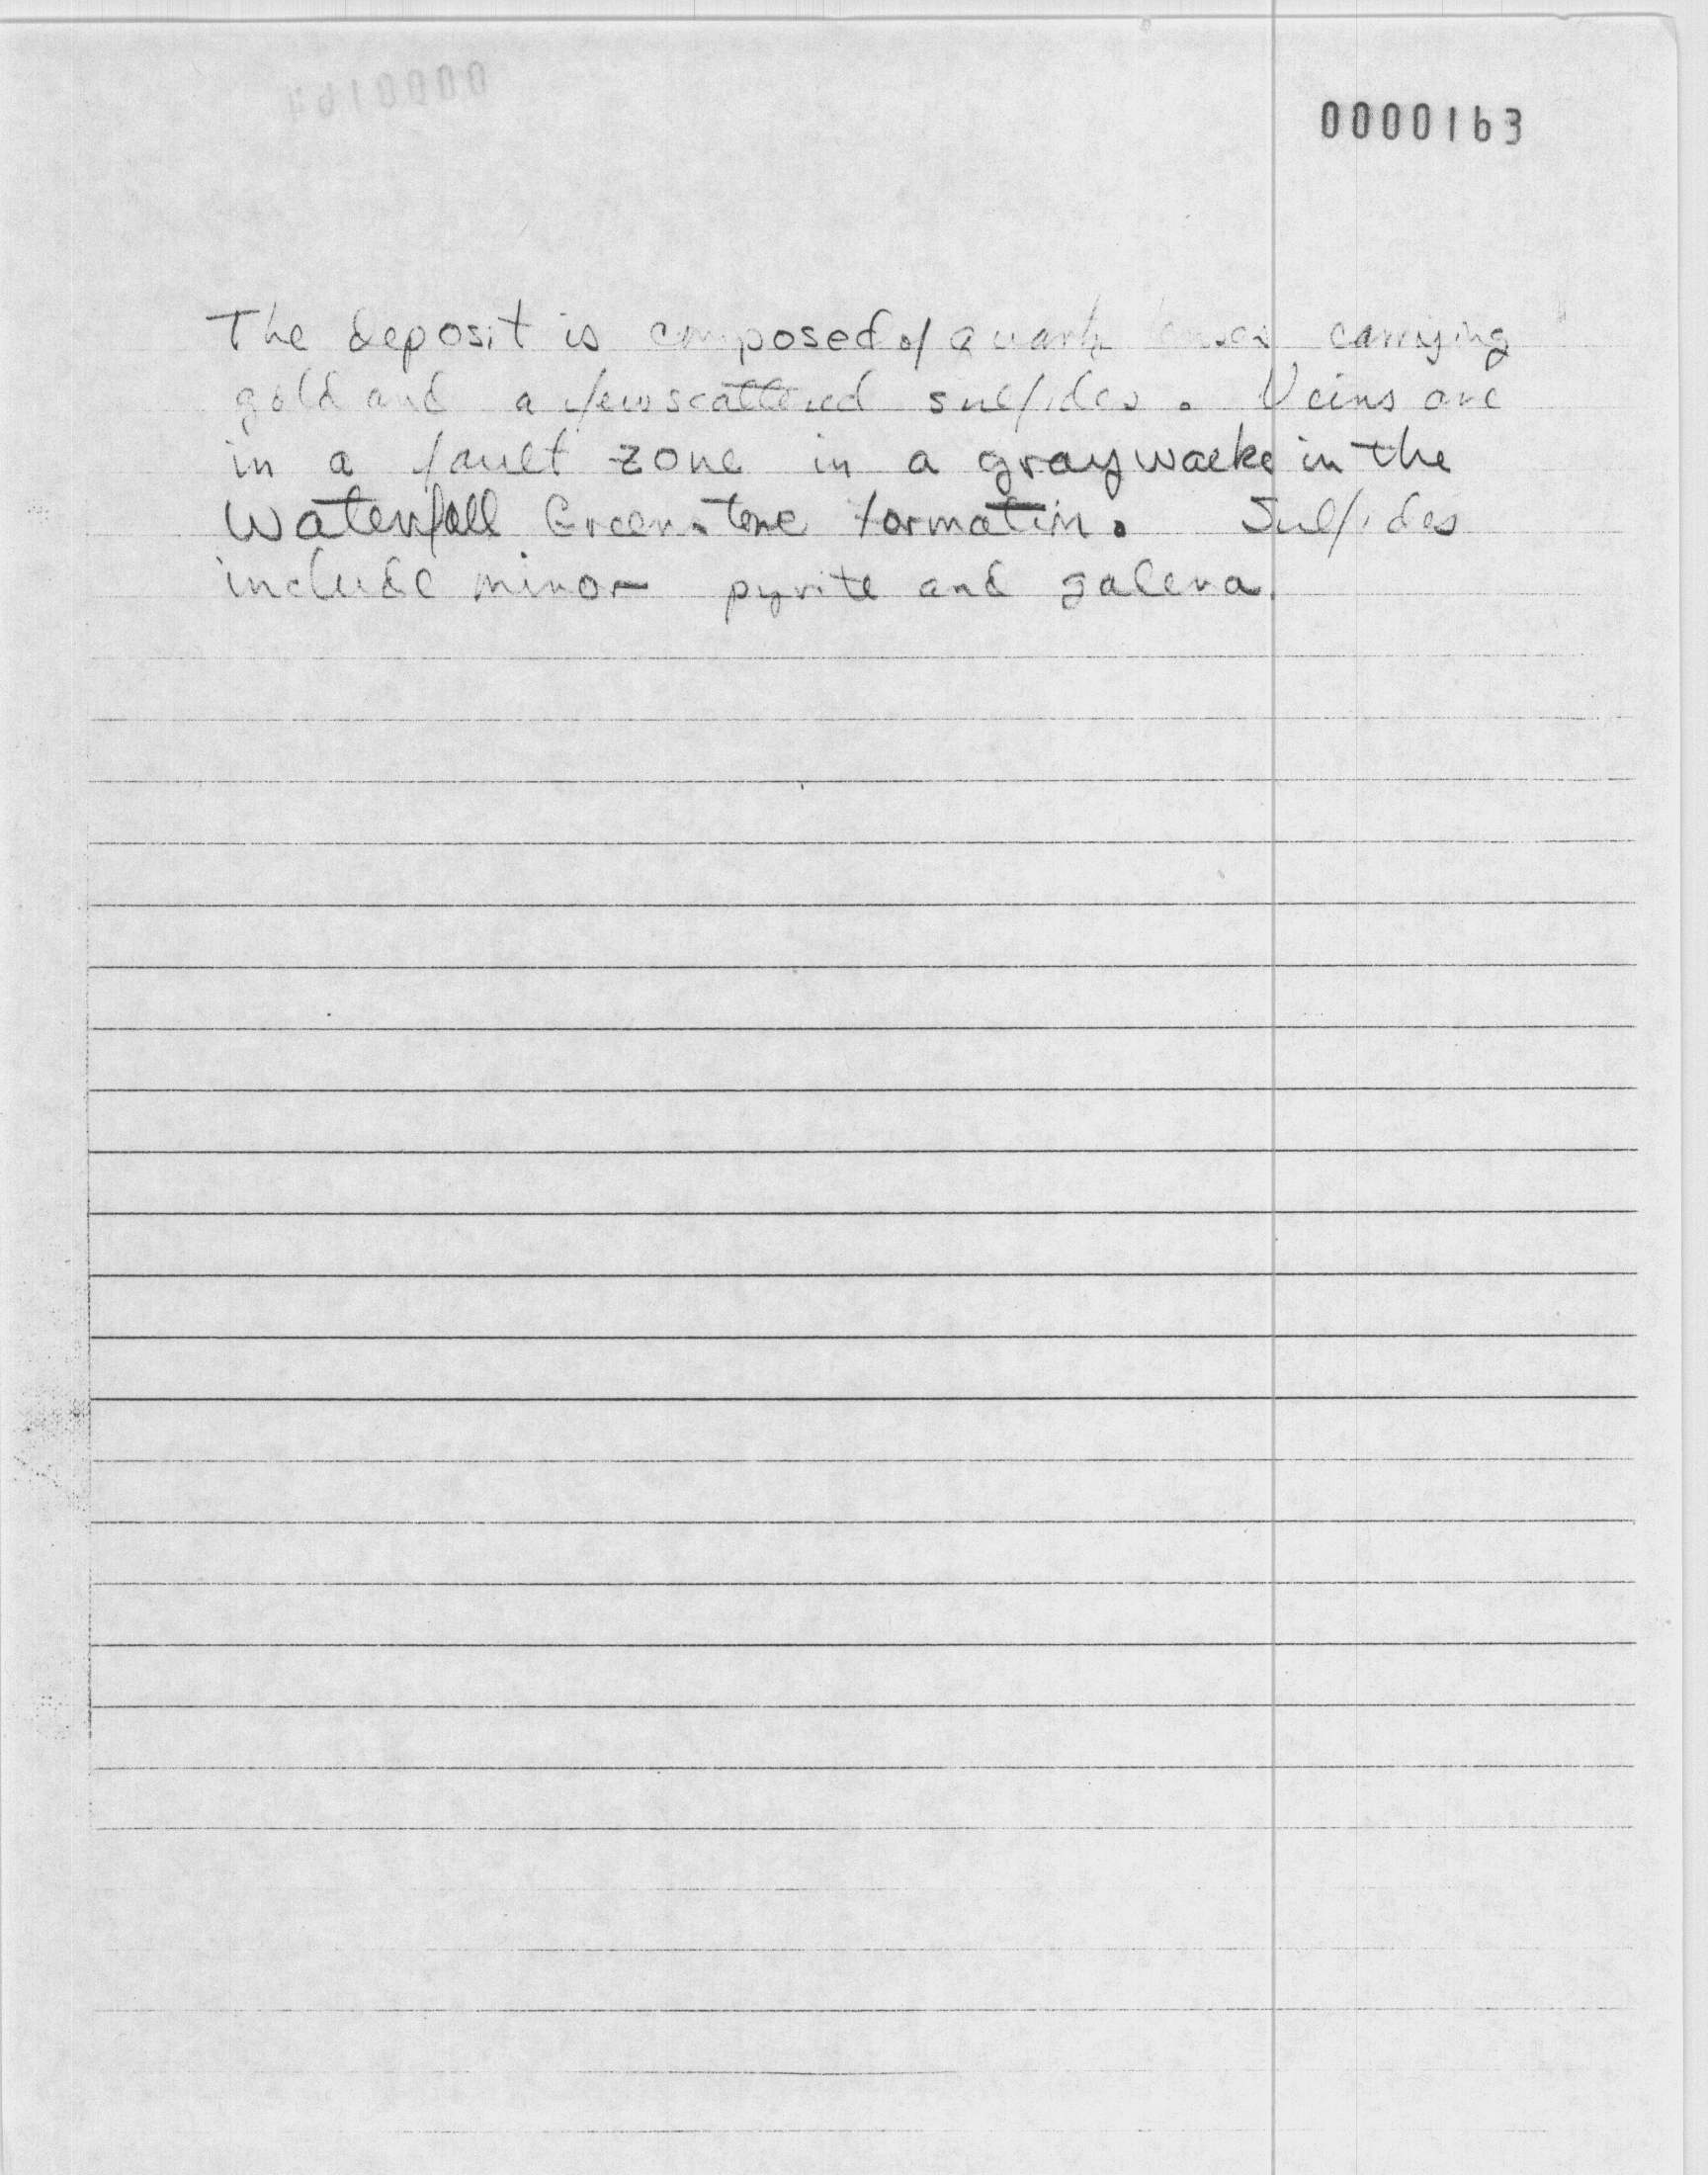 0000163
The deposit is composed of quartz lenses carrying
gold and a few scattered sulfides. Veins are
in a fault zone in a graywacke in the
Waterfall Greenstone formation. Sulfides
include minor pyrite and galena.